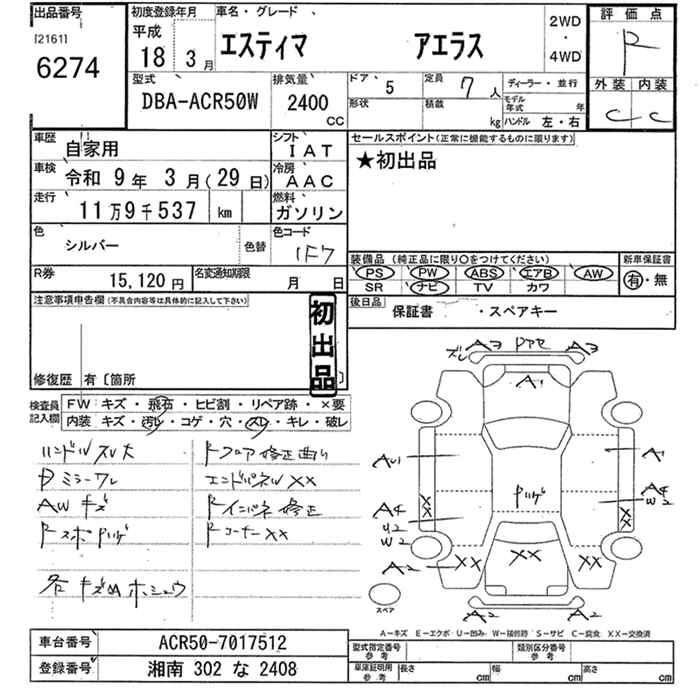 出品番号
[2161]
6274
初度登録年月
平成
18年 3月
車名・グレード
エスティマ アエラス
2WD
・
4WD
評価点
R
外装 内装
C C
型式
DBA-ACR50W
排気量
2400
CC
ドア 5
形状
定員 7人
積載 kg
ディーラー・並行
モデル年式 年
ハンドル 左・右
車歴 自家用
シフト IAT
車検 令和 9年 3月(29日)
冷房 AAC
走行 11万9千537 km
燃料 ガソリン
色 シルバー 色替
色コード 1F7
R券 15,120円
名変通知期限 月 日
セールスポイント(正常に機能するものに限ります)
★初出品
装備品(純正品に限り○をつけてください)
PS PW ABS エアB AW
SR ナビ TV カワ
新車保証書
有・無
後日品
保証書 ・スペアキー
注意事項申告欄(不具合内容等は具体的に記入して下さい)
初出品
修復歴 有〔箇所 〕
検査員記入欄
FW キズ・飛石・ヒビ割・リペア跡・×要
内装 キズ・汚レ・コゲ・穴・スレ・キレ・破レ
ハンドルスレ大
Dミラーワレ
AWキズ
Rスポハゲ
各キズAホシュウ
Rフロア修正曲り
エンドパネルXX
Rインパネ修正
RコーナーXX
A3 A3
ズレ
A1
AU1
A1
A4
U2
W2
A4
W2
XX
XX
ハゲ
A2
XX
XX
XX
A2
A2
スペア
A-キズ E-エクボ U-凹み W-補修跡 S-サビ C-腐食 XX-交換済
車台番号 ACR50-7017512
登録番号 湘南 302 な 2408
型式指定番号参考
類別区分番号参考
車庫証明用参考
長さ cm 幅 cm 高さ cm